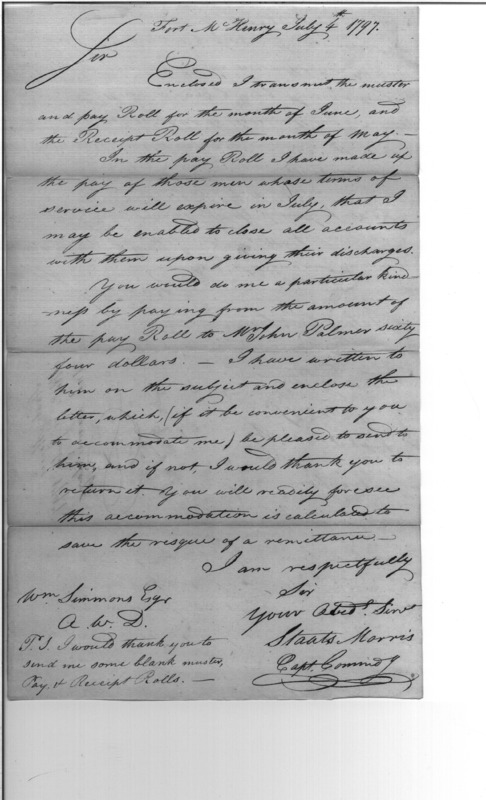 Fort McHenry July 4th 1797.
Sir
Enclosed I transmit the muster
and pay Roll for the month of June, and
the Receipt Roll for the month of May. —
In the pay Roll I have made up
the pay of those men whose terms of
service will expire in July, that I
may be enabled to close all accounts
with them upon giving their discharges.
You would do me a particular kind-
-ness by paying from the amount of
the pay Roll to Mr John Palmer sixty
four dollars. — I have written to
him on the subject and enclose the
letter, which, (if it be convenient to you
to accommodate me) be pleased to send to
him, and if not I would thank you to
return it You will readily foresee
this accommodation is calculated to
save the risque of a remittance —
I am respectfully
Sir
Your Obedt. Servt
Staats Morris
Capt. Commdg
Wm Simmons Esqr
A. W. D.
P.S. I would thank you to
send me some blank muster,
Pay & Receipt Rolls. —